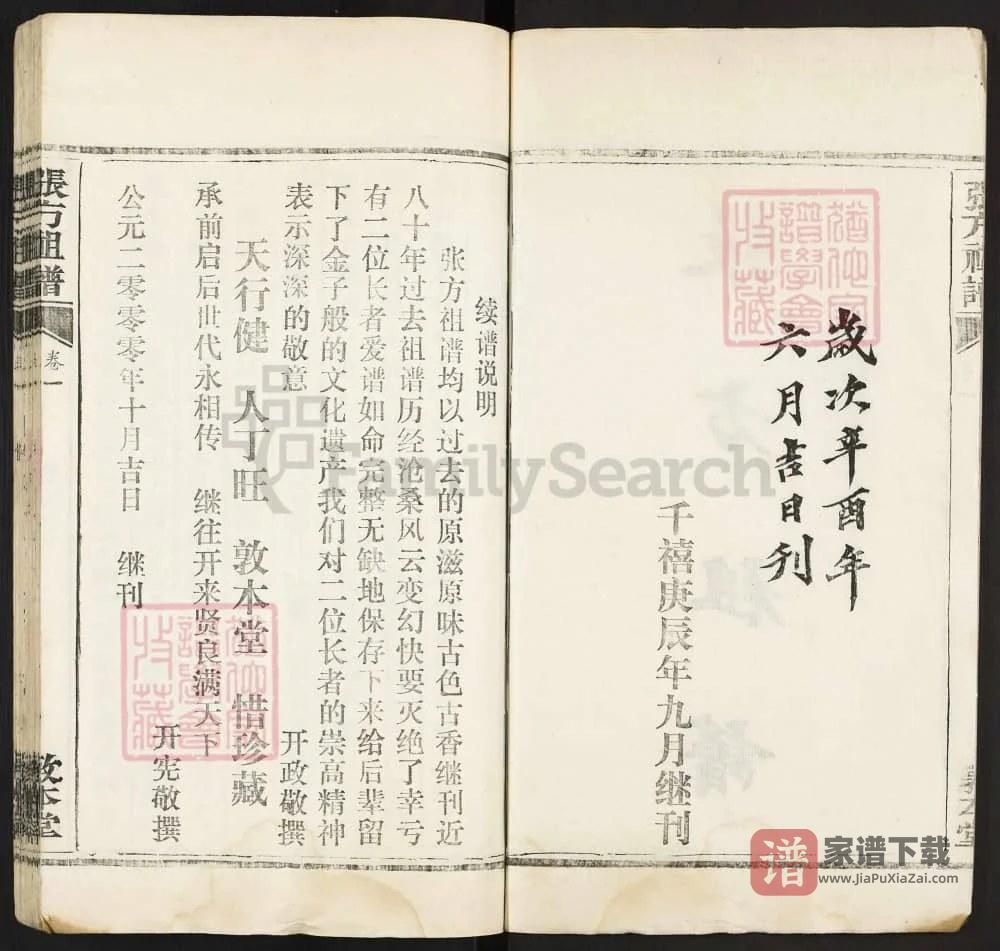 歲次辛酉年
六月吉日刊
千禧庚辰年九月继刊
敦本堂
续谱说明
张方祖谱均以过去的原滋原味古色古香继刊近
八十年过去祖谱历经沧桑风云变幻快要灭绝了幸亏
有二位长者爱谱如命完整无缺地保存下来给后辈留
下了金子般的文化遗产我们对二位长者的崇高精神
表示深深的敬意
开政敬撰
天行健 人丁旺 敦本堂 惜珍藏
承前启后世代永相传 继往开来贤良满天下
开宪敬撰
公元二零零零年十月吉日 继刊
張方祖譜
卷一
敦本堂
FamilySearch
谱
家谱下载
www.JiaPuXiaZai.com